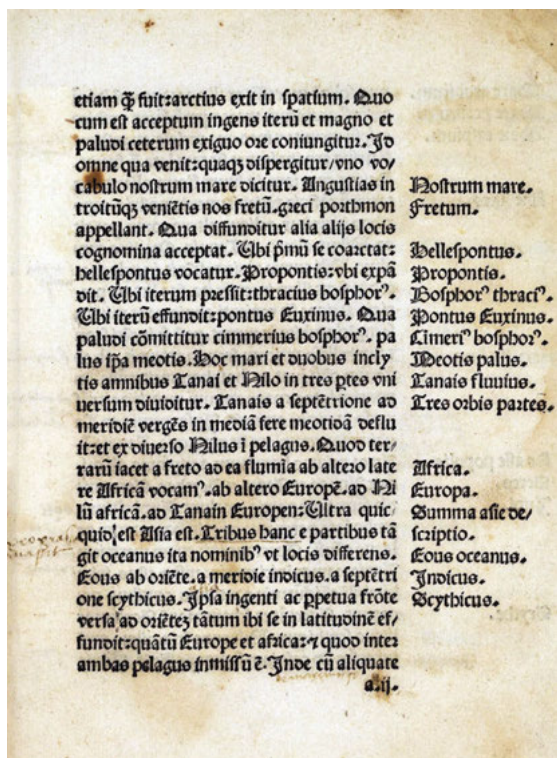 etiam q̄ꝫ fuit:arctius exit in spatium. Quo
cum est acceptum ingens iterū et magno et
paludi ceterum exiguo ore coniungitur. Id
omne qua venit:quaqꝫ dispergitur/vno vo/
cabulo nostrum mare dicitur. Angustias in
troitūqꝫ veniētis nos fretū.greci porthmon
appellant. Qua diffunditur alia alijs locis
cognomina acceptat. Ubi pm̄ū se coarctat:
hellespontus vocatur.Propontis:vbi expā
dit. Ubi iterum pressit:thracius bosphorꝰ.
Ubi iterū effundit:pontus Euxinus. Qua
paludi cōmittitur cimmerius bosphorꝰ. pa
lus ip̄a meotis. Hoc mari et duobus incly
tis amnibus Tanai et Nilo in tres ꝑtes vni
uersum diuiditur. Tanais a septētrione ad
meridiē vergēs in mediā fere meotida deflu
it:et ex diuerso Nilus ī pelagus. Quod ter/
rarū iacet a freto ad ea flumīa ab altero late
re Africā vocamꝰ.ab altero Europē.ad Ni
lū africā.ad Tanain Europen:Ultra quic
quid est Asia est.Tribus hanc e partibus tā
git oceanus ita nominibꝰ vt locis differens.
Eous ab oriēte.a meridie indicus.a septētri
one scythicus.Ipsa ingenti ac ꝑpetua frōte
versa ad oriēteꝫ tātum ibi se in latitudinē ef/
fundit:quātū Europe et africa:⁊ quod inter
ambas pelagus inmissū ē.Inde cū aliquate
a.ij.
Nostrum mare.
Fretum.
Hellespontus.
Propontis.
Bosphorꝰ thraciꝰ.
Pontus Euxinus.
Cimeriꝰ bosphorꝰ.
Meotis palus.
Tanais fluuius.
Tres orbis partes.
Africa.
Europa.
Summa asie de/
scriptio.
Eous oceanus.
Indicus.
Scythicus.